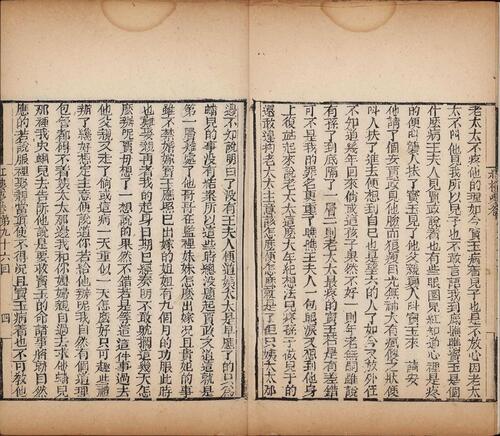 紅樓夢卷
老太太不疼他的理如今寶玉病著兒子也是不放心因老太
太不叫他見我所以兒子也不敢言語我到底瞧瞧寶玉是個
什麼病王夫人見賈政說着也有些眼圈兒紅知道心裡是疼
的便叫襲人扶了寶玉來寶玉見了他父親襲人叫他請安
他請了個安賈政見他臉面狠瘦目光無神大有瘋傻之狀便
叫人扶了進去便想到自己也是望六的人了如今又放外任
不知道幾年回來倘或這孩子果然不好一則年老無嗣雖說
有孫子到底隔了一層二則老太太最疼的是寶玉若有差錯
可不是我的罪名更重了瞧瞧王夫人一包眼淚又想到他身
上復站起來說老太太這麼大年紀想法兒疼孫子做兒子的
還敢違拗老太太主意該怎麼便怎麼就是了但只姨太太那
邊不知說明白了沒有王夫人便道姨太太是早應了的只為
蟠兒的事沒有結案所以這些時總沒提起賈政又道這就是
第一層的難處他哥哥在監裡妹妹怎麼出嫁況且貴妃的事
雖不禁婚嫁寶玉應照已出嫁的姐姐有九個月的功服此時
也難娶親再者我的起身日期已經奏明不敢耽擱這幾天怎
麼辦呢賈母想了一想說的果然不錯若是等這幾件事過去
他父親又走了倘或這病一天重似一天怎麼好只可越些禮
辦了纔好想定主意便說道你若給他辦呢我自然有個道理
包管都碍不着姨太太那邊我和你媳婦親自過去求他蟠兒
那裡我央蝌兒去告訴他說是要救寶玉的命諸事將就自然
應的若說服裡娶親當真使不得況且寶玉病着也不可教他
紅樓夢 第九十六回 四